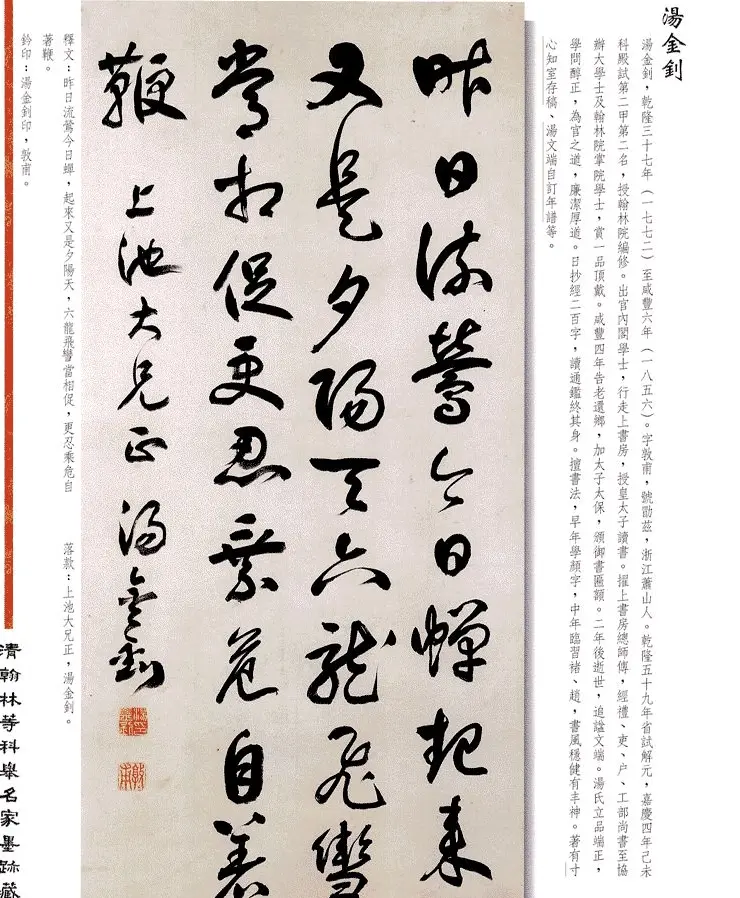 湯金釗
湯金釗，乾隆三十七年（一七七二）至咸豐六年（一八五六）。字敦甫，號勖茲，浙江蕭山人。乾隆五十九年省試解元，嘉慶四年己未
科殿試第二甲第二名，授翰林院編修。出官內閣學士，行走上書房，授皇太子讀書。擢上書房總師傅，經禮、吏、户、工部尚書至協
辦大學士及翰林院掌院學士，賞一品頂戴。咸豐四年告老還鄉，加太子太保，頒御書匾額。二年後逝世，追諡文端。湯氏立品端正，
學問醇正，為官之道，廉潔厚道。日抄經二百字，讀通鑑終其身。擅書法，早年學顏字，中年臨習褚、趙，書風穩健有丰神。著有寸
心知室存稿、湯文端自訂年譜等。
昨日流鶯今日蟬起來
又是夕陽天六龍飛轡
當相促更忍乘危自著
鞭
上池大兄正
湯金釗
釋文：昨日流鶯今日蟬，起來又是夕陽天，六龍飛轡當相促，更忍乘危自
著鞭。
落款：上池大兄正，湯金釗。
鈐印：湯金釗印，敦甫。
清翰林等科舉名家墨跡藏